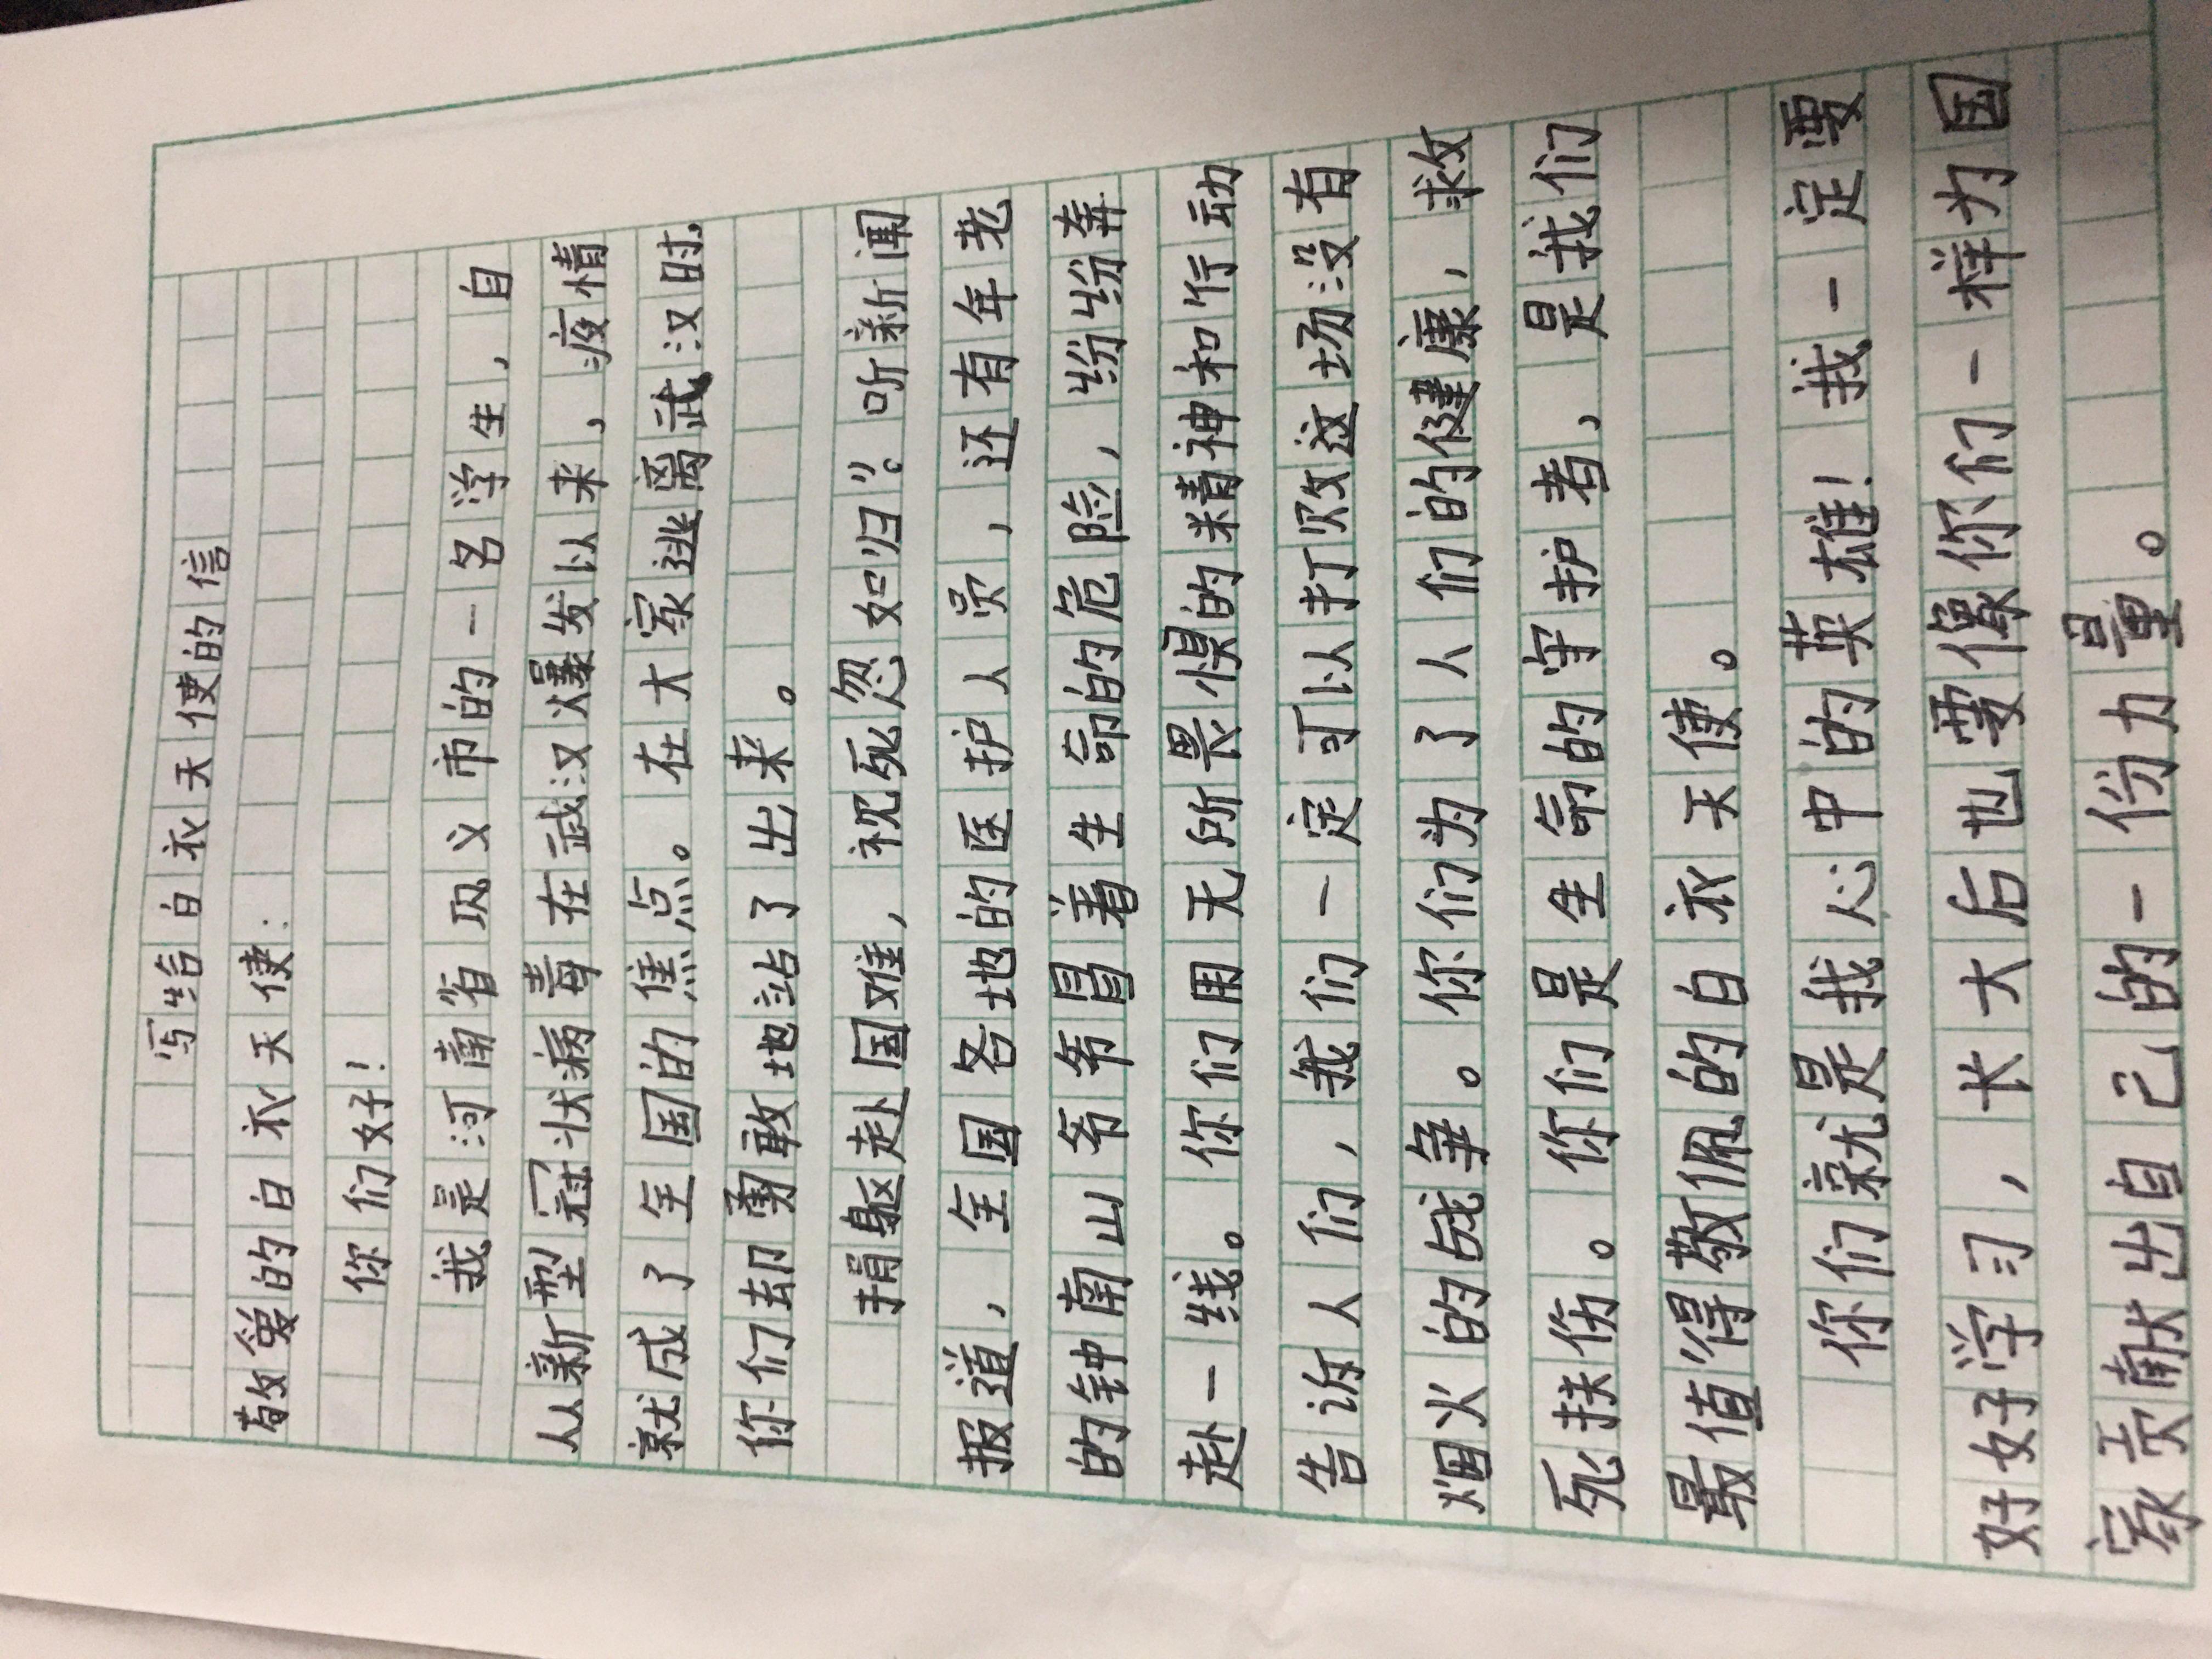 写给白衣天使的信
敬爱的白衣天使:
你们好!
我是河南省巩义市的一名学生,自
从新型冠状病毒在武汉爆发以来,疫情
就成了全国的焦点。在大家逃离武汉时,
你们却勇敢地站了出来。
捐躯赴国难,视死忽如归”。听新闻
报道,全国各地的医护人员,还有年老
的钟南山爷爷冒着生命的危险,纷纷奔
赴一线。你们用无所畏惧的精神和行动
告诉人们,我们一定可以打败这场没有
烟火的战争。你们为了人们的健康,救
死扶伤。你们是生命的守护者,是我们
最值得敬佩的白衣天使。
你们就是我心中的英雄!我一定要
好好学习,长大后也要像你们一样为国
家贡献出自己的一份力量。